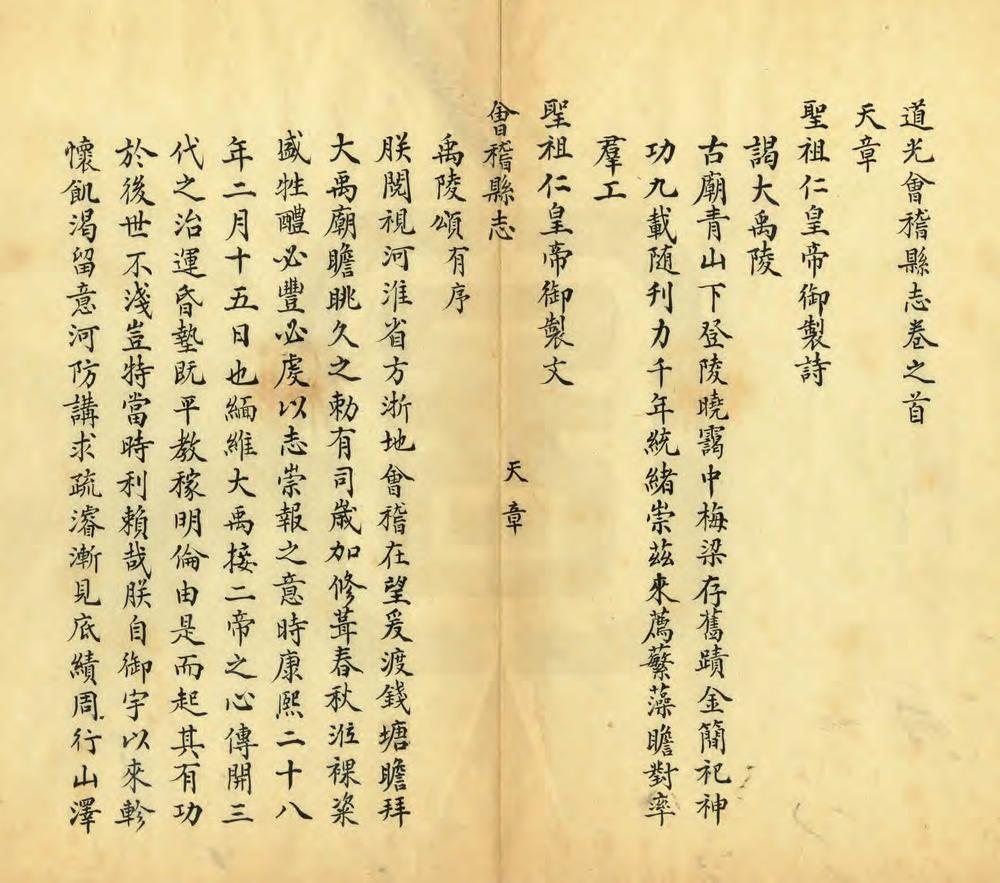 道光會稽縣志卷之首
天章
聖祖仁皇帝御製詩
謁大禹陵
古廟青山下登陵曉靄中梅梁存舊蹟金簡祀神
功九載随刋力千年統緒崇茲來薦蘩藻瞻對率
羣工
聖祖仁皇帝御製文
會稽縣志
天章
禹陵頌有序
朕閱視河淮省方浙地會稽在望爰渡錢塘瞻拜
大禹廟瞻眺久之勅有司歲加修葺春秋涖祼粢
盛牲醴必豐必虔以志崇報之意時康熙二十八
年二月十五日也緬維大禹接二帝之心傳開三
代之治運昏墊既平教稼明倫由是而起其有功
於後世不淺豈特當時利賴哉朕自御宇以來軫
懷飢渴留意河防講求疏濬漸見底績周行山澤